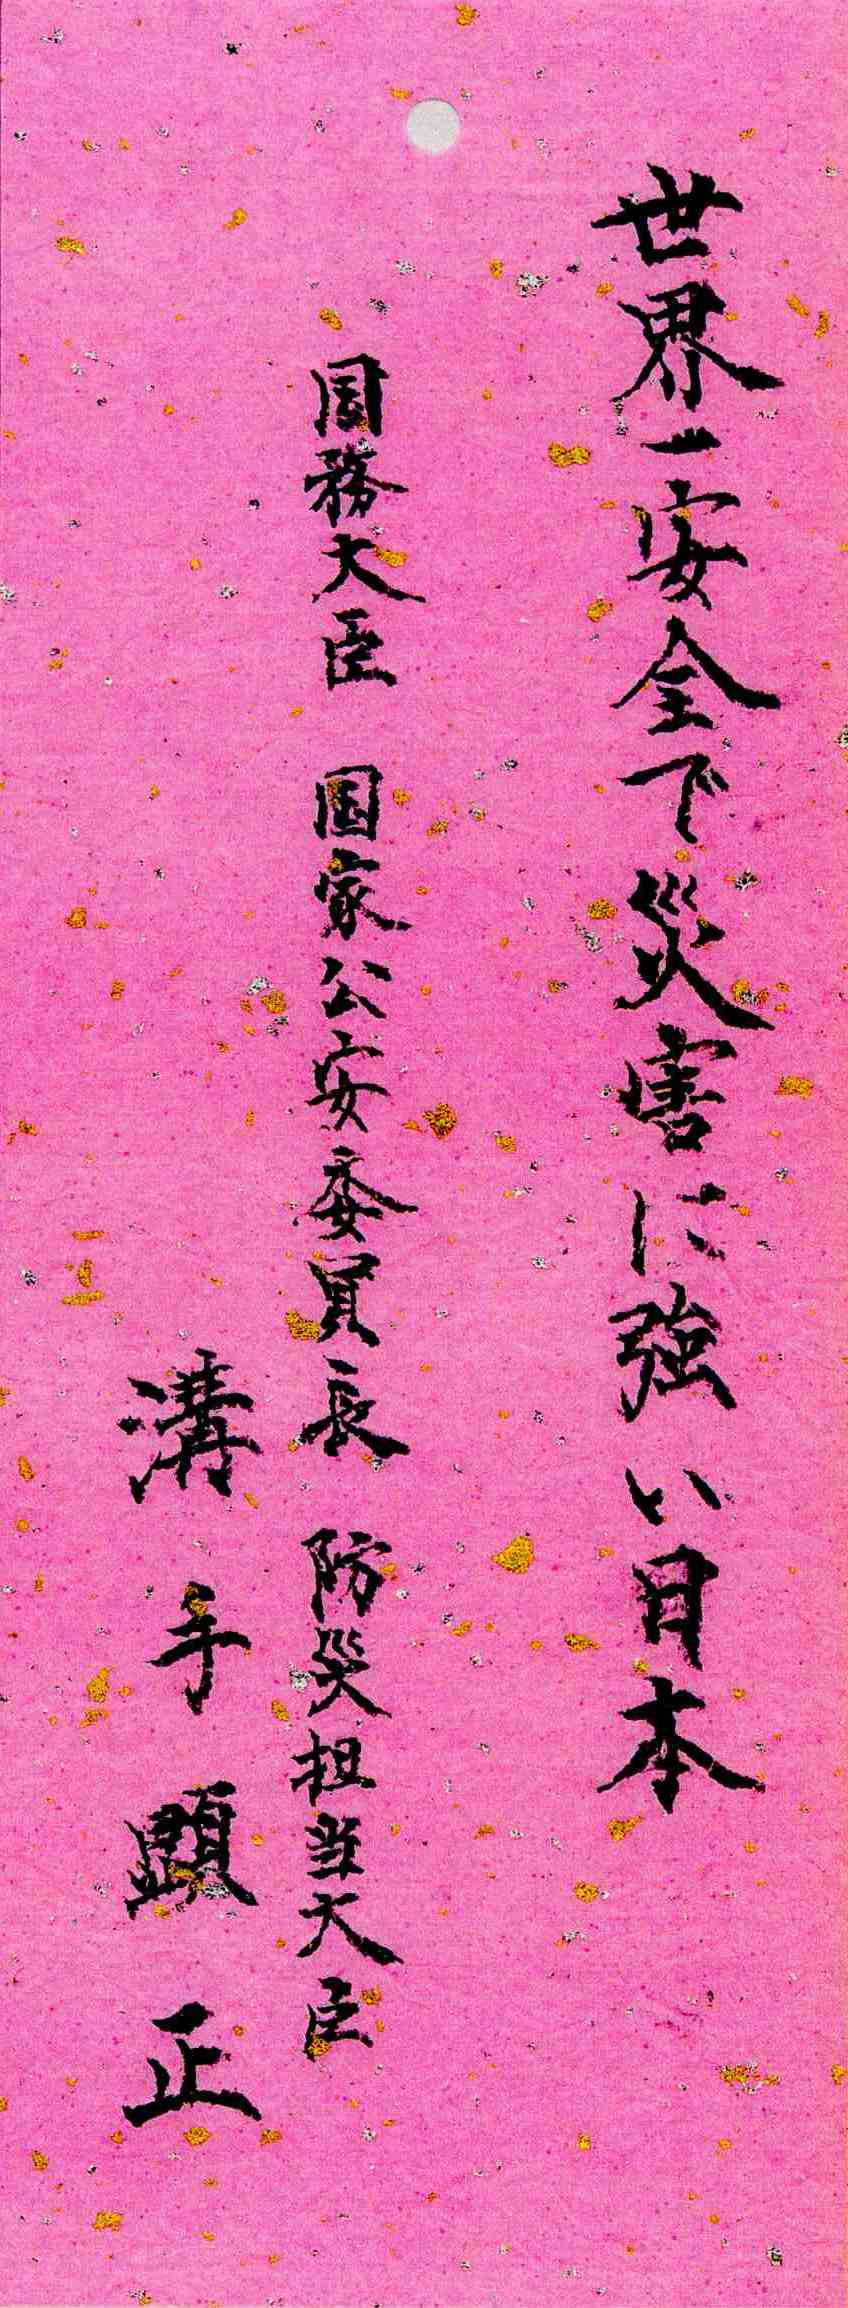 世界一安全で災害に強い日本
国務大臣　国家公安委員長　防災担当大臣
溝手顕正